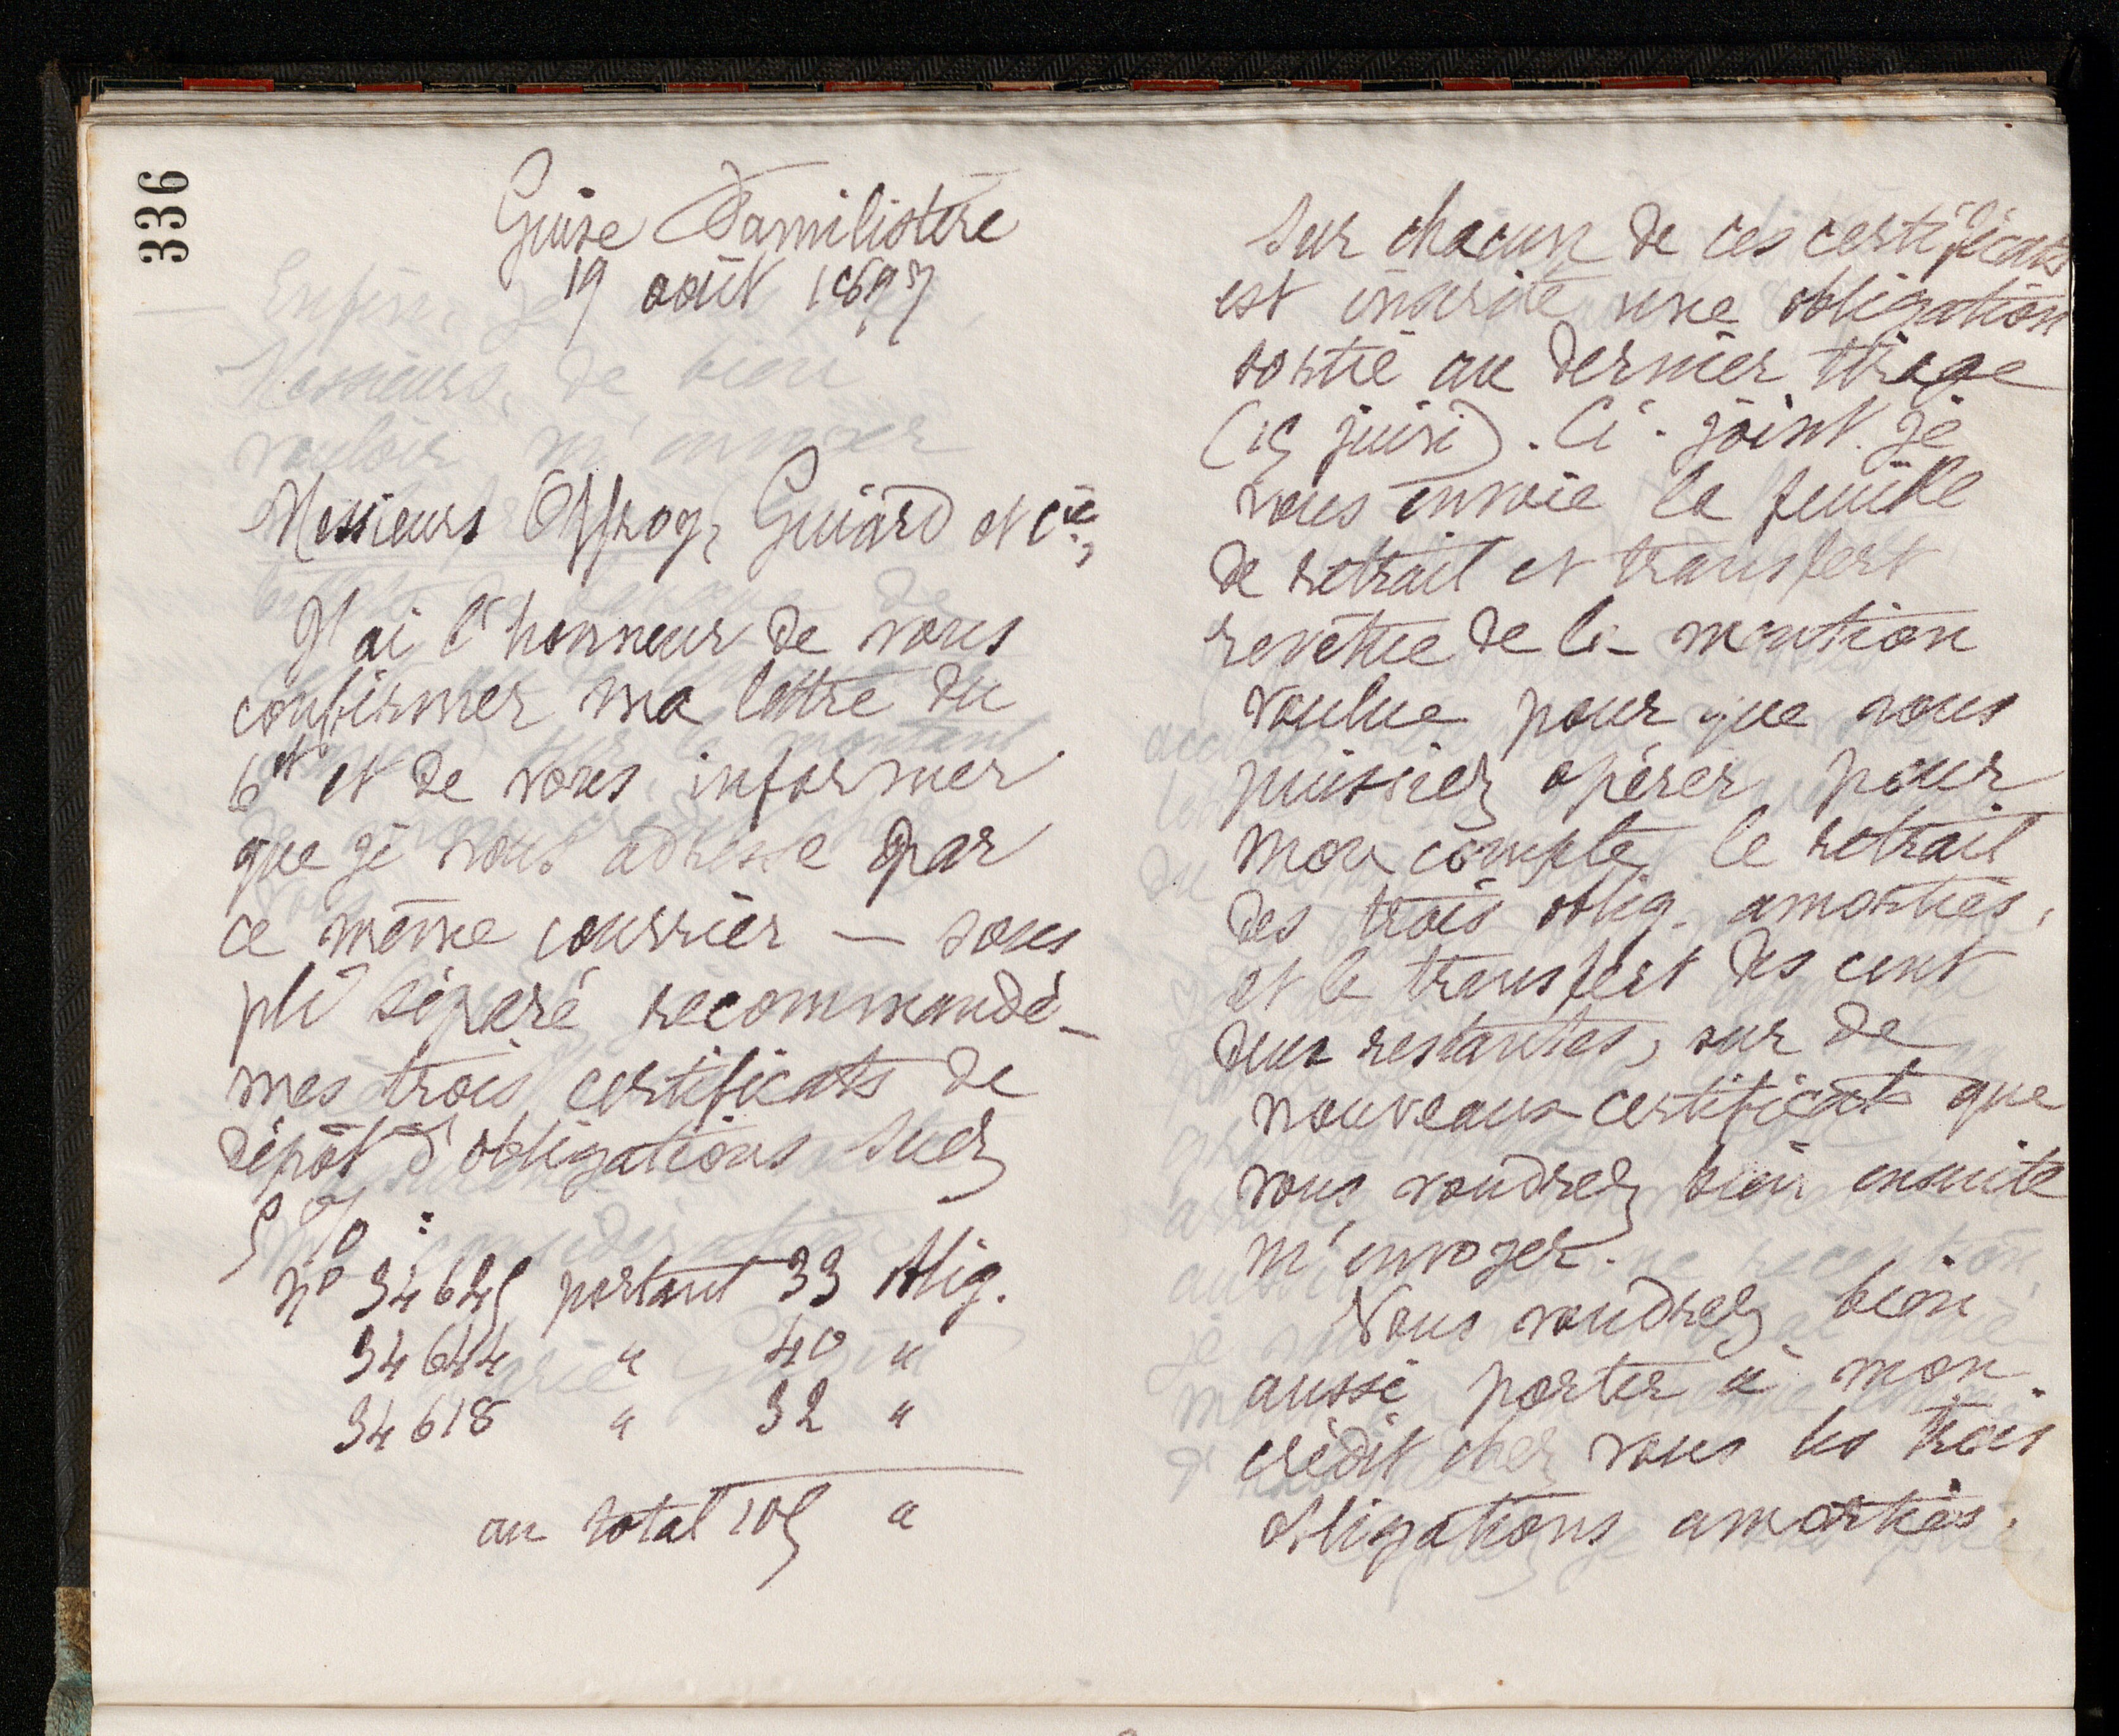 336
Guise Familistère
19 août 1897
Messieurs Offroy, Guiard et Cie,
J'ai l'honneur de vous
confirmer ma lettre du
6 ct et de vous informer
que je vous adresse par
ce même courrier — sous
pli séparé recommandé —
mes trois certificats de
dépôt d'obligations Suez
5 %:
No 34625 portant 33 oblig.
34644 " 40 "
34618 " 32 "
au total 105 "
Sur chacun de ces certificats
est inscrite une obligation
sortie au dernier tirage
(15 juin). Ci-joint je
vous envoie la feuille
de retrait et transfert
revêtue de la mention
voulue pour que vous
puissiez opérer pour
mon compte le retrait
des trois oblig. amorties,
et le transfert des cent
deux restantes, sur de
nouveaux certificats que
vous voudrez bien ensuite
m'envoyer.
Vous voudrez bien
aussi porter à mon
crédit chez vous les trois
obligations amorties.